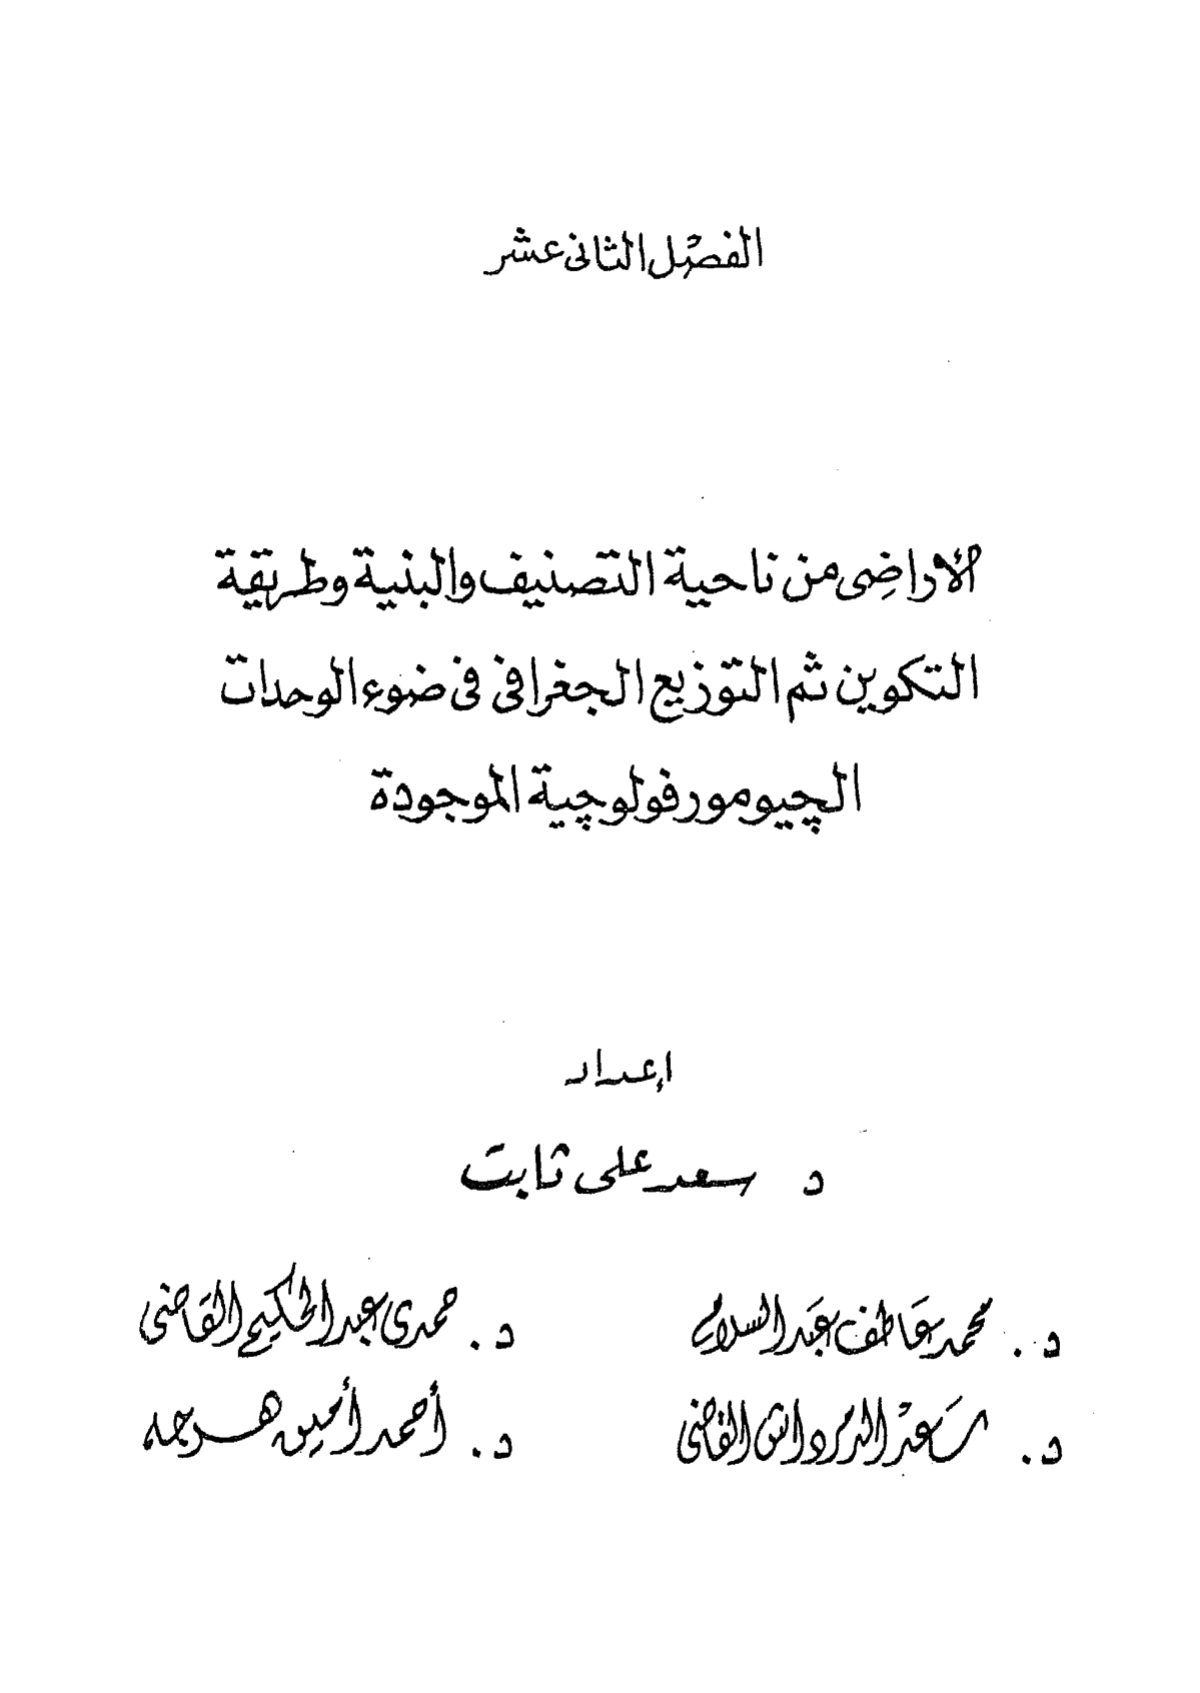 الفصل الثانى عشر
الأراضى من ناحية التصنيف والبنية وطريقة
التكوين ثم التوزيع الجغرافى فى ضوء الوحدات
الچيومورفولوچية الموجودة
إعداد
د سعد على ثابت
د. محمد عاطف عبد السلام
د. حمدى عبد الحكيم القاضى
د. سعد الدمرداش القاضى
د. أحمد أمين هرجه